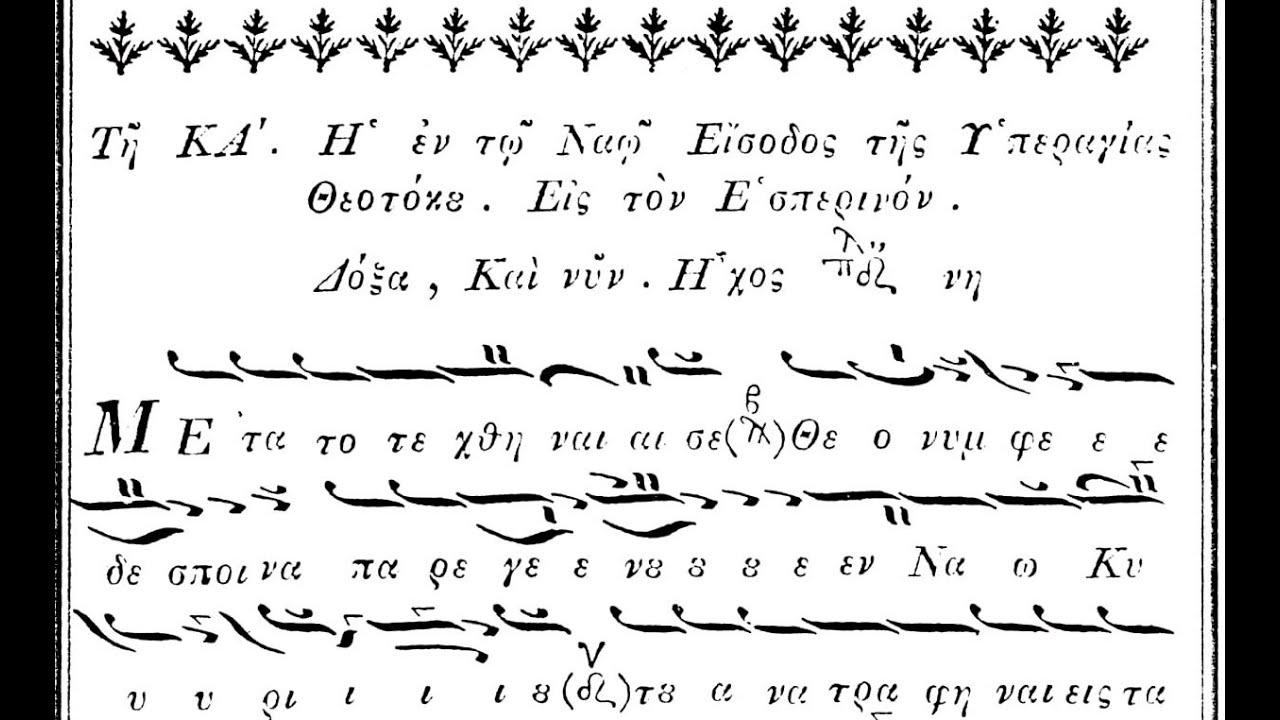 Τῇ ΚΑ'. Ἡ ἐν τῷ Ναῷ Εἴσοδος τῆς Ὑπεραγίας
Θεοτόκȣ. Εἰς τὸν Ἑσπερινόν.
Δόξα, Καὶ νῦν. Ἦχος νη
ΜΕ τα το τε χθη ναι αι σε Θε ο νυμ φε ε ε
δε σποι να πα ρε γε ε ε νȣ ȣ ȣ ε εν Να ω Κυ
υ υ ρι ι ι ι ȣ τȣ α να τρα φη ναι εις τα